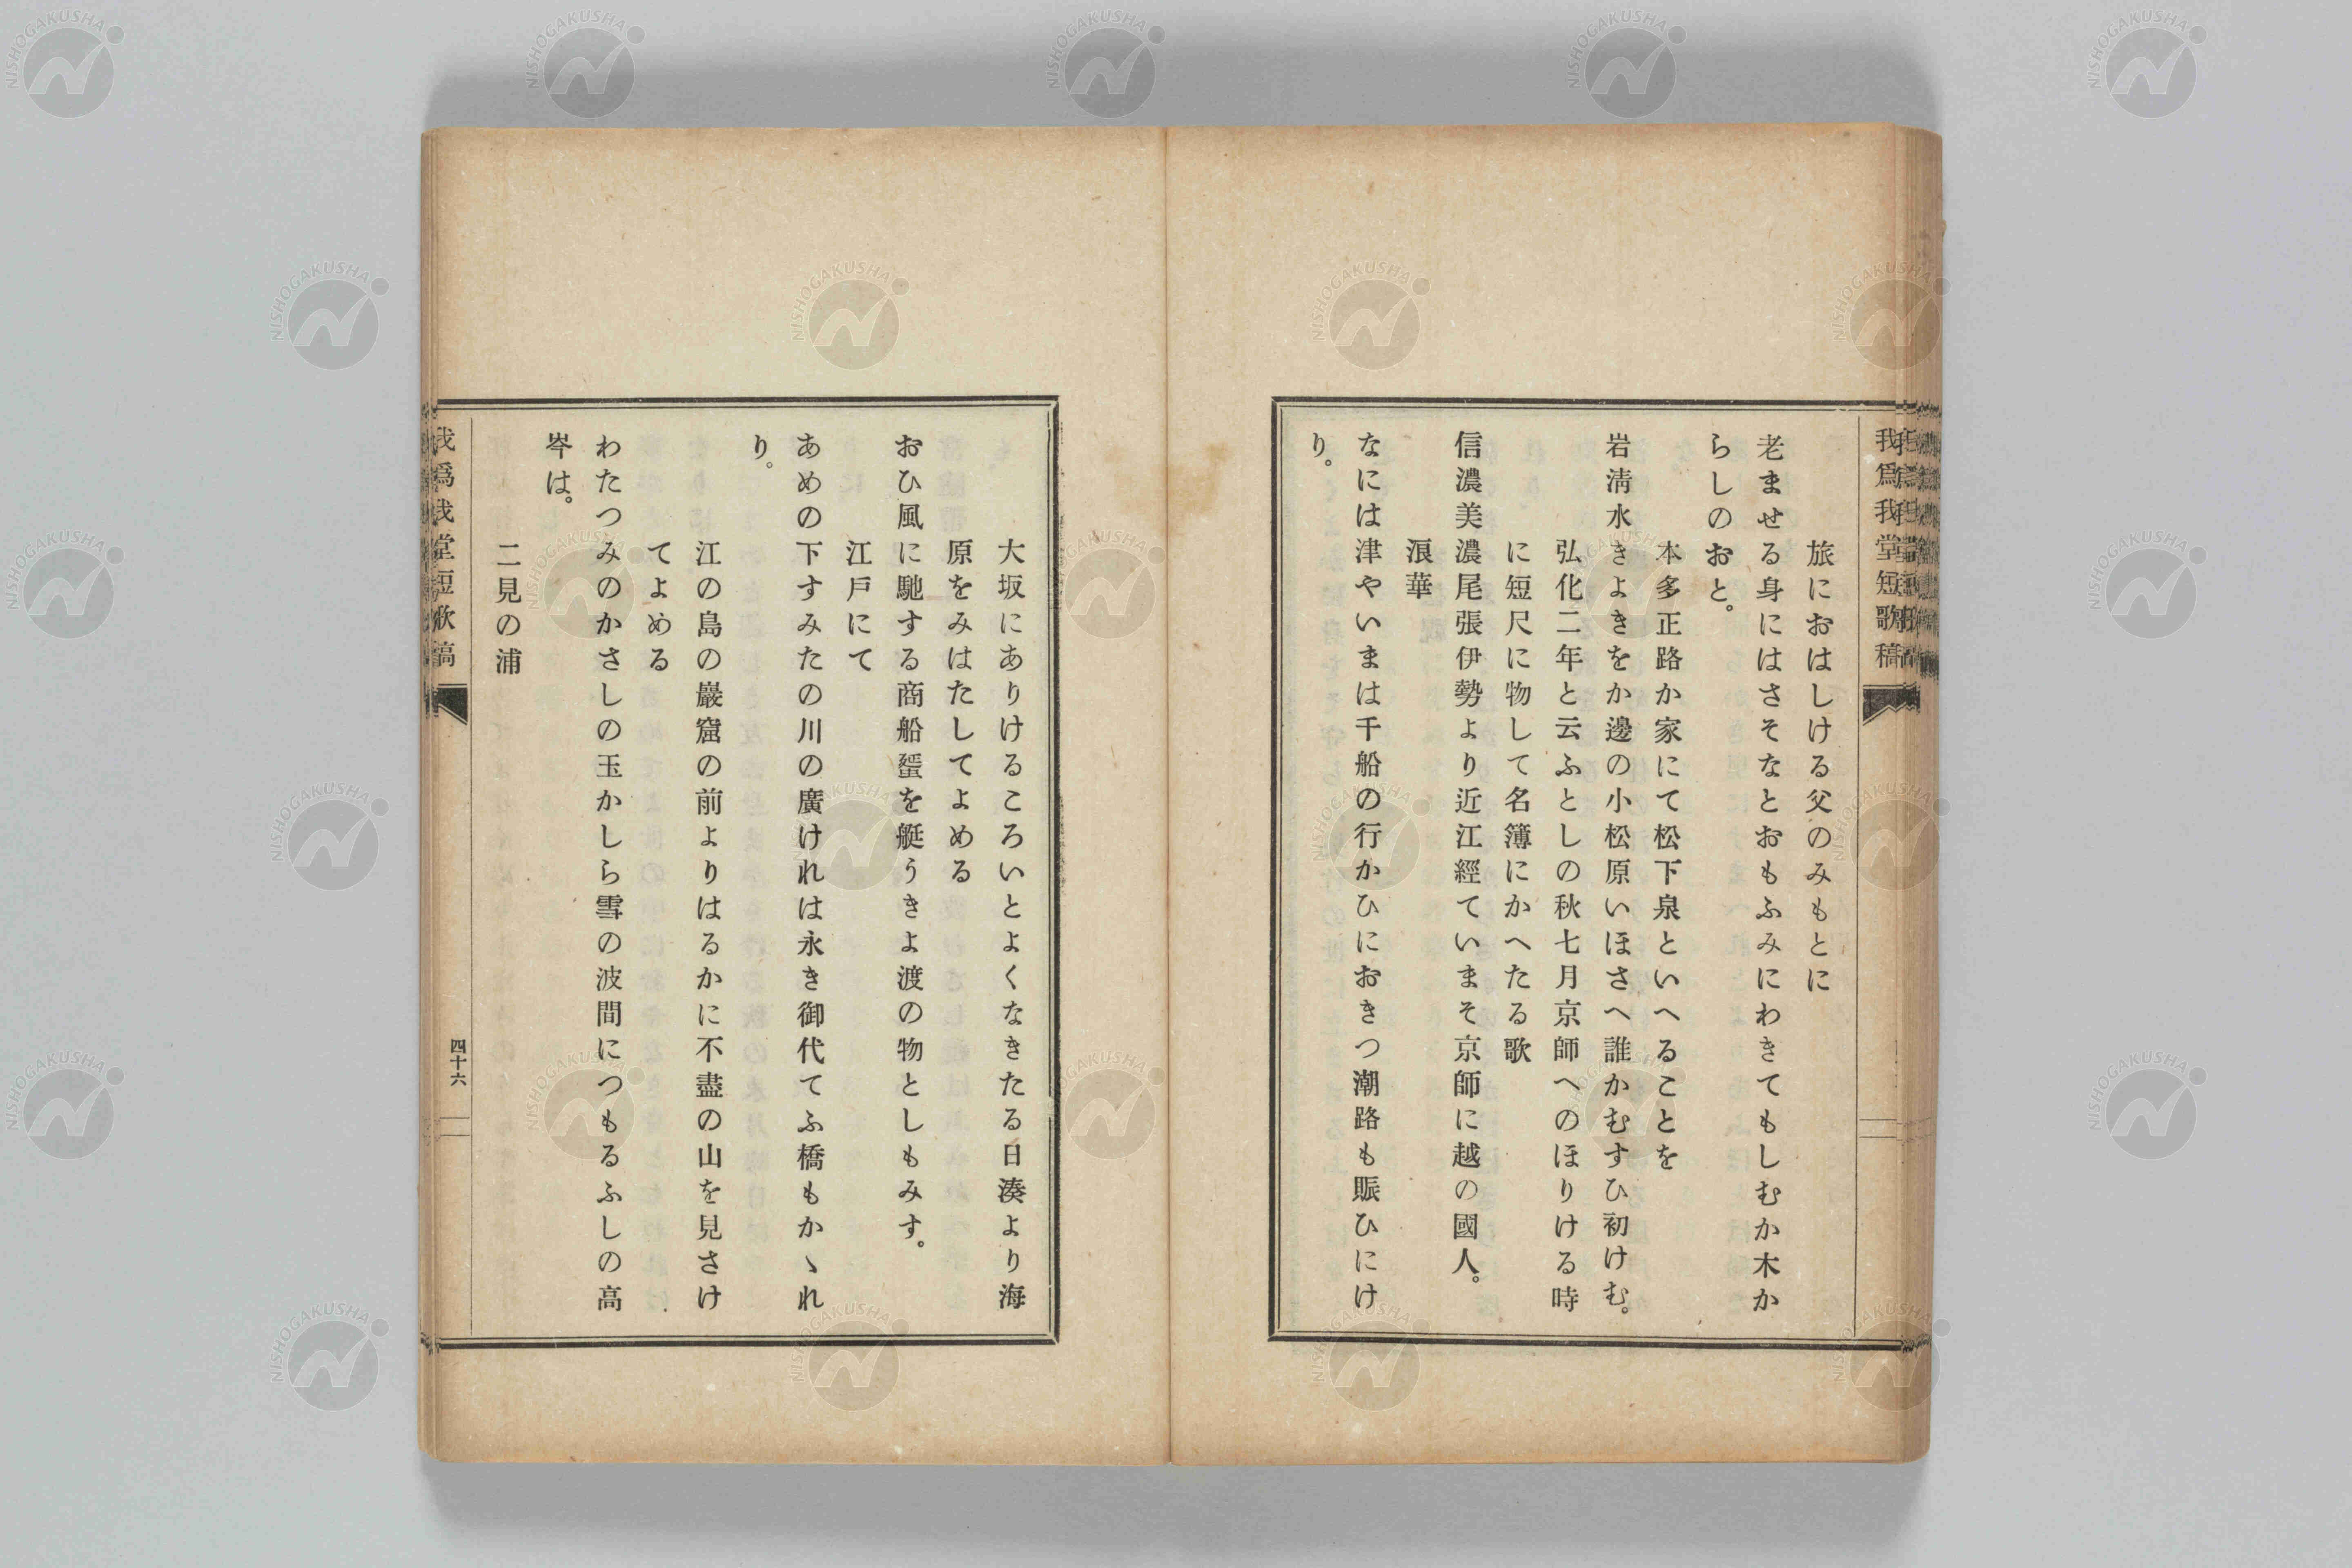 我爲我堂短歌稿
旅におはしける父のみもとに
老ませる身にはさそなとおもふみにわきてもしむか木か
らしのおと。
本多正路か家にて松下泉といへることを
岩淸水きよきをか邊の小松原いほさへ誰かむすひ初けむ。
弘化二年と云ふとしの秋七月京師へのほりける時
に短尺に物して名簿にかへたる歌
信濃美濃尾張伊勢より近江經ていまそ京師に越の國人。
浪華
なには津やいまは千船の行かひにおきつ潮路も賑ひにけ
り。
大坂にありけるころいとよくなきたる日湊より海
原をみはたしてよめる
おひ風に馳する商船蜑を艇うきよ渡の物としもみす。
江戶にて
あめの下すみたの川の廣けれは永き御代てふ橋もかゝれ
り。
江の島の巖窟の前よりはるかに不盡の山を見さけ
てよめる
わたつみのかさしの玉かしら雪の波間につもるふしの高
岑は。
二見の浦
我爲我堂短歌稿
四十六
NISHOGAKUSHA